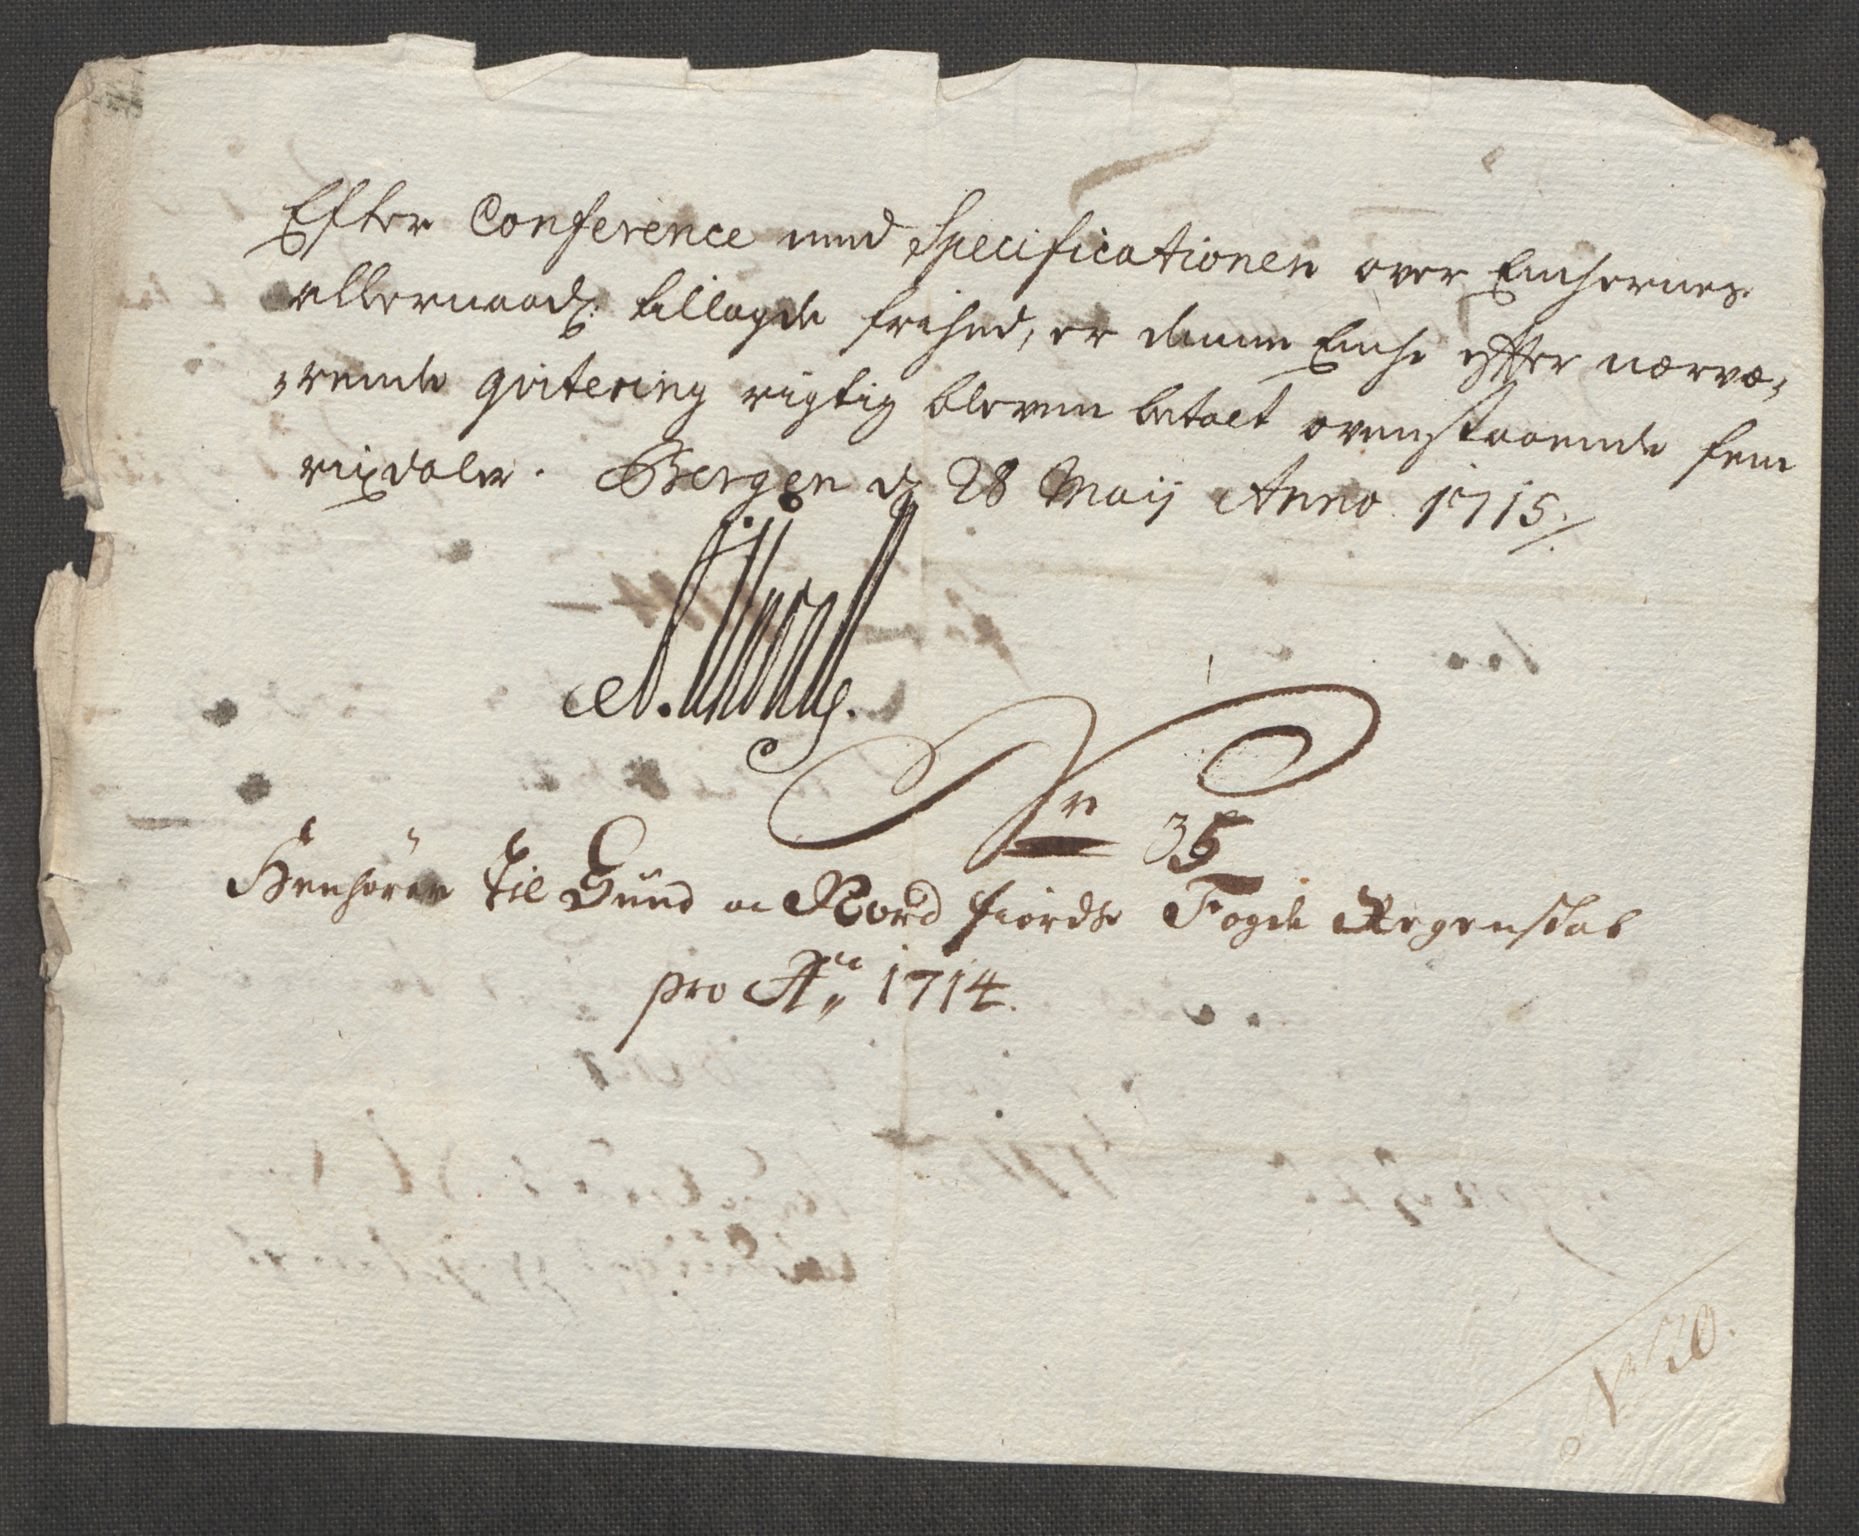 Efter Conference med Specificationen over Enchernes
allernaadg: tillagde frihed, er denne Enche efter nærvæ,
,rende qvitering rigtig bleven betalt ovenstaaende fem
rixdaler. Bergen d 28 Maij Anno 1715.
Nr 35
Henhörer til Sund oc Nord fiords Fogde Regenskab
pro Ao 1714.
No 70.